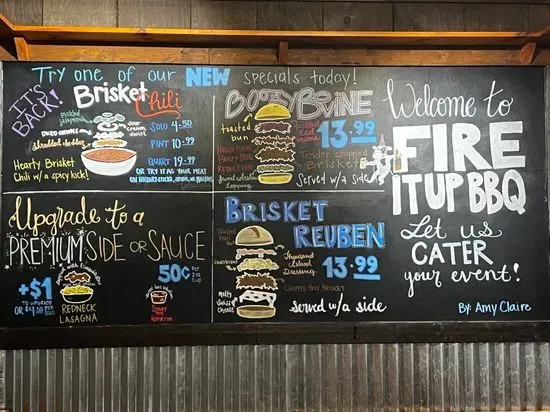 Try one of our NEW specials today!
IT'S BACK!
Brisket Chili
pickled jalapeños
sour cream
shredded cheddar
SOLO 4.50
PINT 10.99
QUART 19.99
Hearty Brisket
Chili w/a spicy kick!
OR TRY IT AS YOUR MEAT
BOOZY BOVINE
toasted bun
13.99
Tender chopped
Brisket
Served w/a side
Upgrade to a
PREMIUM SIDE OR SAUCE
+$1
TO UPGRADE
REDNECK
LASAGNA
50¢
BOOZY BBQ
REDUCTION
BRISKET
REUBEN
Toasted Bun
Sauerkraut
Thousand
Island
Dressing
13.99
Melty
Swiss
Cheese
CHOPPED BEEF BRISKET
served w/a side
Welcome to
FIRE
IT UP BBQ
Let us
CATER
your event!
By: Amy Claire